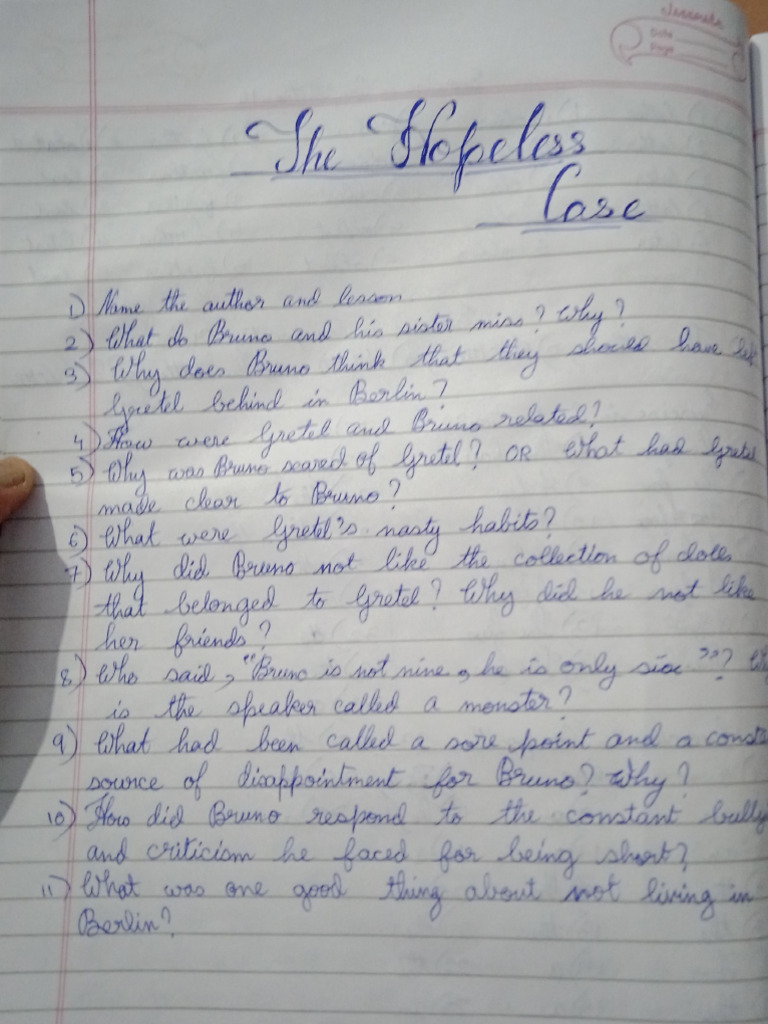 classmate
Date
Page
The Hopeless
Case
1) Name the author and lesson
2) What do Bruno and his sister miss? Why?
3) Why does Bruno think that they should have lef
Gretel behind in Berlin?
4) How were Gretel and Bruno related?
5) Why was Bruno scared of Gretel? OR What had Gretel
made clear to Bruno?
6) What were Gretel's nasty habits?
7) Why did Bruno not like the collection of dolls
that belonged to Gretel? Why did he not like
her friends?
8) Who said, "Bruno is not nine, he is only six"? Wh
is the speaker called a monster?
9) What had been called a sore point and a consta
source of disappointment for Bruno? Why?
10) How did Bruno respond to the constant bully
and criticism he faced for being short?
11) What was one good thing about not living in
Berlin?